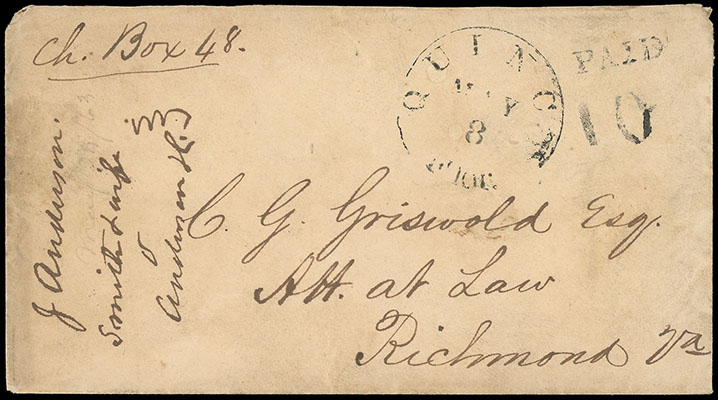 Ch. Box 48.
QUINCY
MAY
8
FLOR.
PAID
10
C. G. Griswold Esq.
Att. at Law
Richmond Va
J Anderson.
Smith & wife
v
Anderson